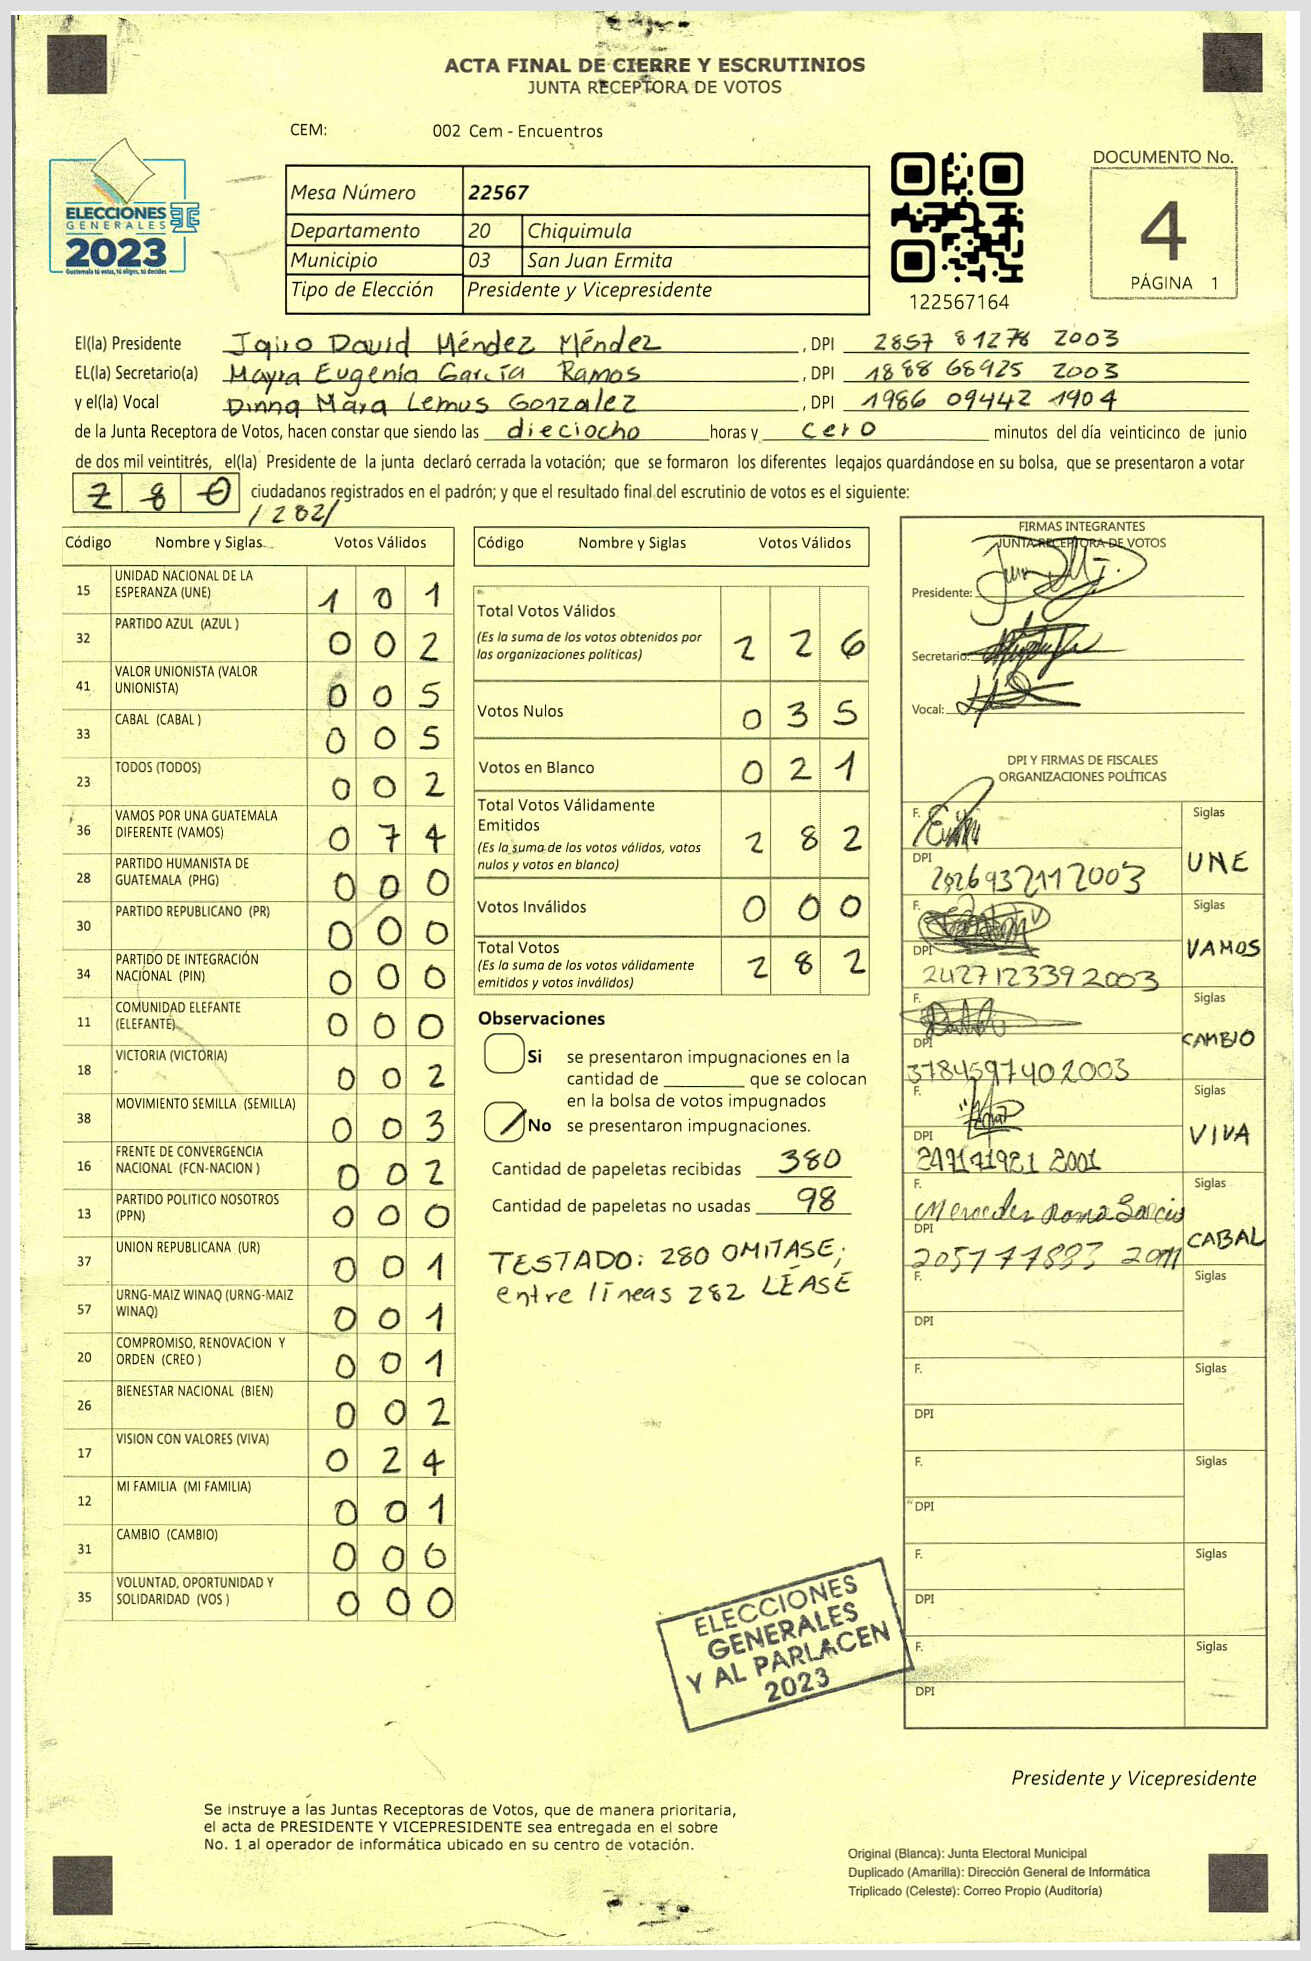 ACTA FINAL DE CIERRE Y ESCRUTINIOS
JUNTA RECEPTORA DE VOTOS
CEM: 002 Cem - Encuentros
ELECCIONES
GENERALES
2023
Guatemala tú votas, tú eliges, tú decides
Mesa Número 22567
Departamento 20 Chiquimula
Municipio 03 San Juan Ermita
Tipo de Elección Presidente y Vicepresidente
122567164
DOCUMENTO No.
4
PÁGINA 1
El(la) Presidente Jairo David Méndez Méndez , DPI 2857 81278 2003
EL(la) Secretario(a) Mayra Eugenia García Ramos , DPI 1888 68925 2003
y el(la) Vocal Dinna Mara Lemus Gonzalez , DPI 1986 09442 1904
de la Junta Receptora de Votos, hacen constar que siendo las dieciocho horas y cero minutos del día veinticinco de junio
de dos mil veintitrés, el(la) Presidente de la junta declaró cerrada la votación; que se formaron los diferentes legajos guardándose en su bolsa, que se presentaron a votar
280 ciudadanos registrados en el padrón; y que el resultado final del escrutinio de votos es el siguiente:
/282/
Código Nombre y Siglas Votos Válidos
15 UNIDAD NACIONAL DE LA ESPERANZA (UNE) 1 0 1
32 PARTIDO AZUL (AZUL ) 0 0 2
41 VALOR UNIONISTA (VALOR UNIONISTA) 0 0 5
33 CABAL (CABAL ) 0 0 5
23 TODOS (TODOS) 0 0 2
36 VAMOS POR UNA GUATEMALA DIFERENTE (VAMOS) 0 7 4
28 PARTIDO HUMANISTA DE GUATEMALA (PHG) 0 0 0
30 PARTIDO REPUBLICANO (PR) 0 0 0
34 PARTIDO DE INTEGRACIÓN NACIONAL (PIN) 0 0 0
11 COMUNIDAD ELEFANTE (ELEFANTE) 0 0 0
18 VICTORIA (VICTORIA) 0 0 2
38 MOVIMIENTO SEMILLA (SEMILLA) 0 0 3
16 FRENTE DE CONVERGENCIA NACIONAL (FCN-NACION ) 0 0 2
13 PARTIDO POLITICO NOSOTROS (PPN) 0 0 0
37 UNION REPUBLICANA (UR) 0 0 1
57 URNG-MAIZ WINAQ (URNG-MAIZ WINAQ) 0 0 1
20 COMPROMISO, RENOVACION Y ORDEN (CREO ) 0 0 1
26 BIENESTAR NACIONAL (BIEN) 0 0 2
17 VISION CON VALORES (VIVA) 0 2 4
12 MI FAMILIA (MI FAMILIA) 0 0 1
31 CAMBIO (CAMBIO) 0 0 6
35 VOLUNTAD, OPORTUNIDAD Y SOLIDARIDAD (VOS ) 0 0 0
Código Nombre y Siglas Votos Válidos
Total Votos Válidos
(Es la suma de los votos obtenidos por
las organizaciones políticas) 2 2 6
Votos Nulos 0 3 5
Votos en Blanco 0 2 1
Total Votos Válidamente
Emitidos
(Es la suma de los votos válidos, votos
nulos y votos en blanco) 2 8 2
Votos Inválidos 0 0 0
Total Votos
(Es la suma de los votos válidamente
emitidos y votos inválidos) 2 8 2
Observaciones
Si se presentaron impugnaciones en la
cantidad de ________ que se colocan
en la bolsa de votos impugnados
No se presentaron impugnaciones.
Cantidad de papeletas recibidas 380
Cantidad de papeletas no usadas 98
TESTADO: 280 OMITASE;
entre líneas 282 LÉASE
FIRMAS INTEGRANTES
JUNTA RECEPTORA DE VOTOS
Presidente:
Secretario:
Vocal:
DPI Y FIRMAS DE FISCALES
ORGANIZACIONES POLÍTICAS
F. Siglas
UNE
DPI
F. Siglas
VAMOS
DPI 2427123392003
F. Siglas
CAMBIO
DPI 3784597402003
F. Siglas
VIVA
DPI
F. Siglas
CABAL
DPI
F. Siglas
DPI
F. Siglas
DPI
F. Siglas
DPI
F. Siglas
DPI
F. Siglas
DPI
ELECCIONES
GENERALES
Y AL PARLACEN
2023
Presidente y Vicepresidente
Se instruye a las Juntas Receptoras de Votos, que de manera prioritaria,
el acta de PRESIDENTE Y VICEPRESIDENTE sea entregada en el sobre
No. 1 al operador de informática ubicado en su centro de votación.
Original (Blanca): Junta Electoral Municipal
Duplicado (Amarilla): Dirección General de Informática
Triplicado (Celeste): Correo Propio (Auditoría)